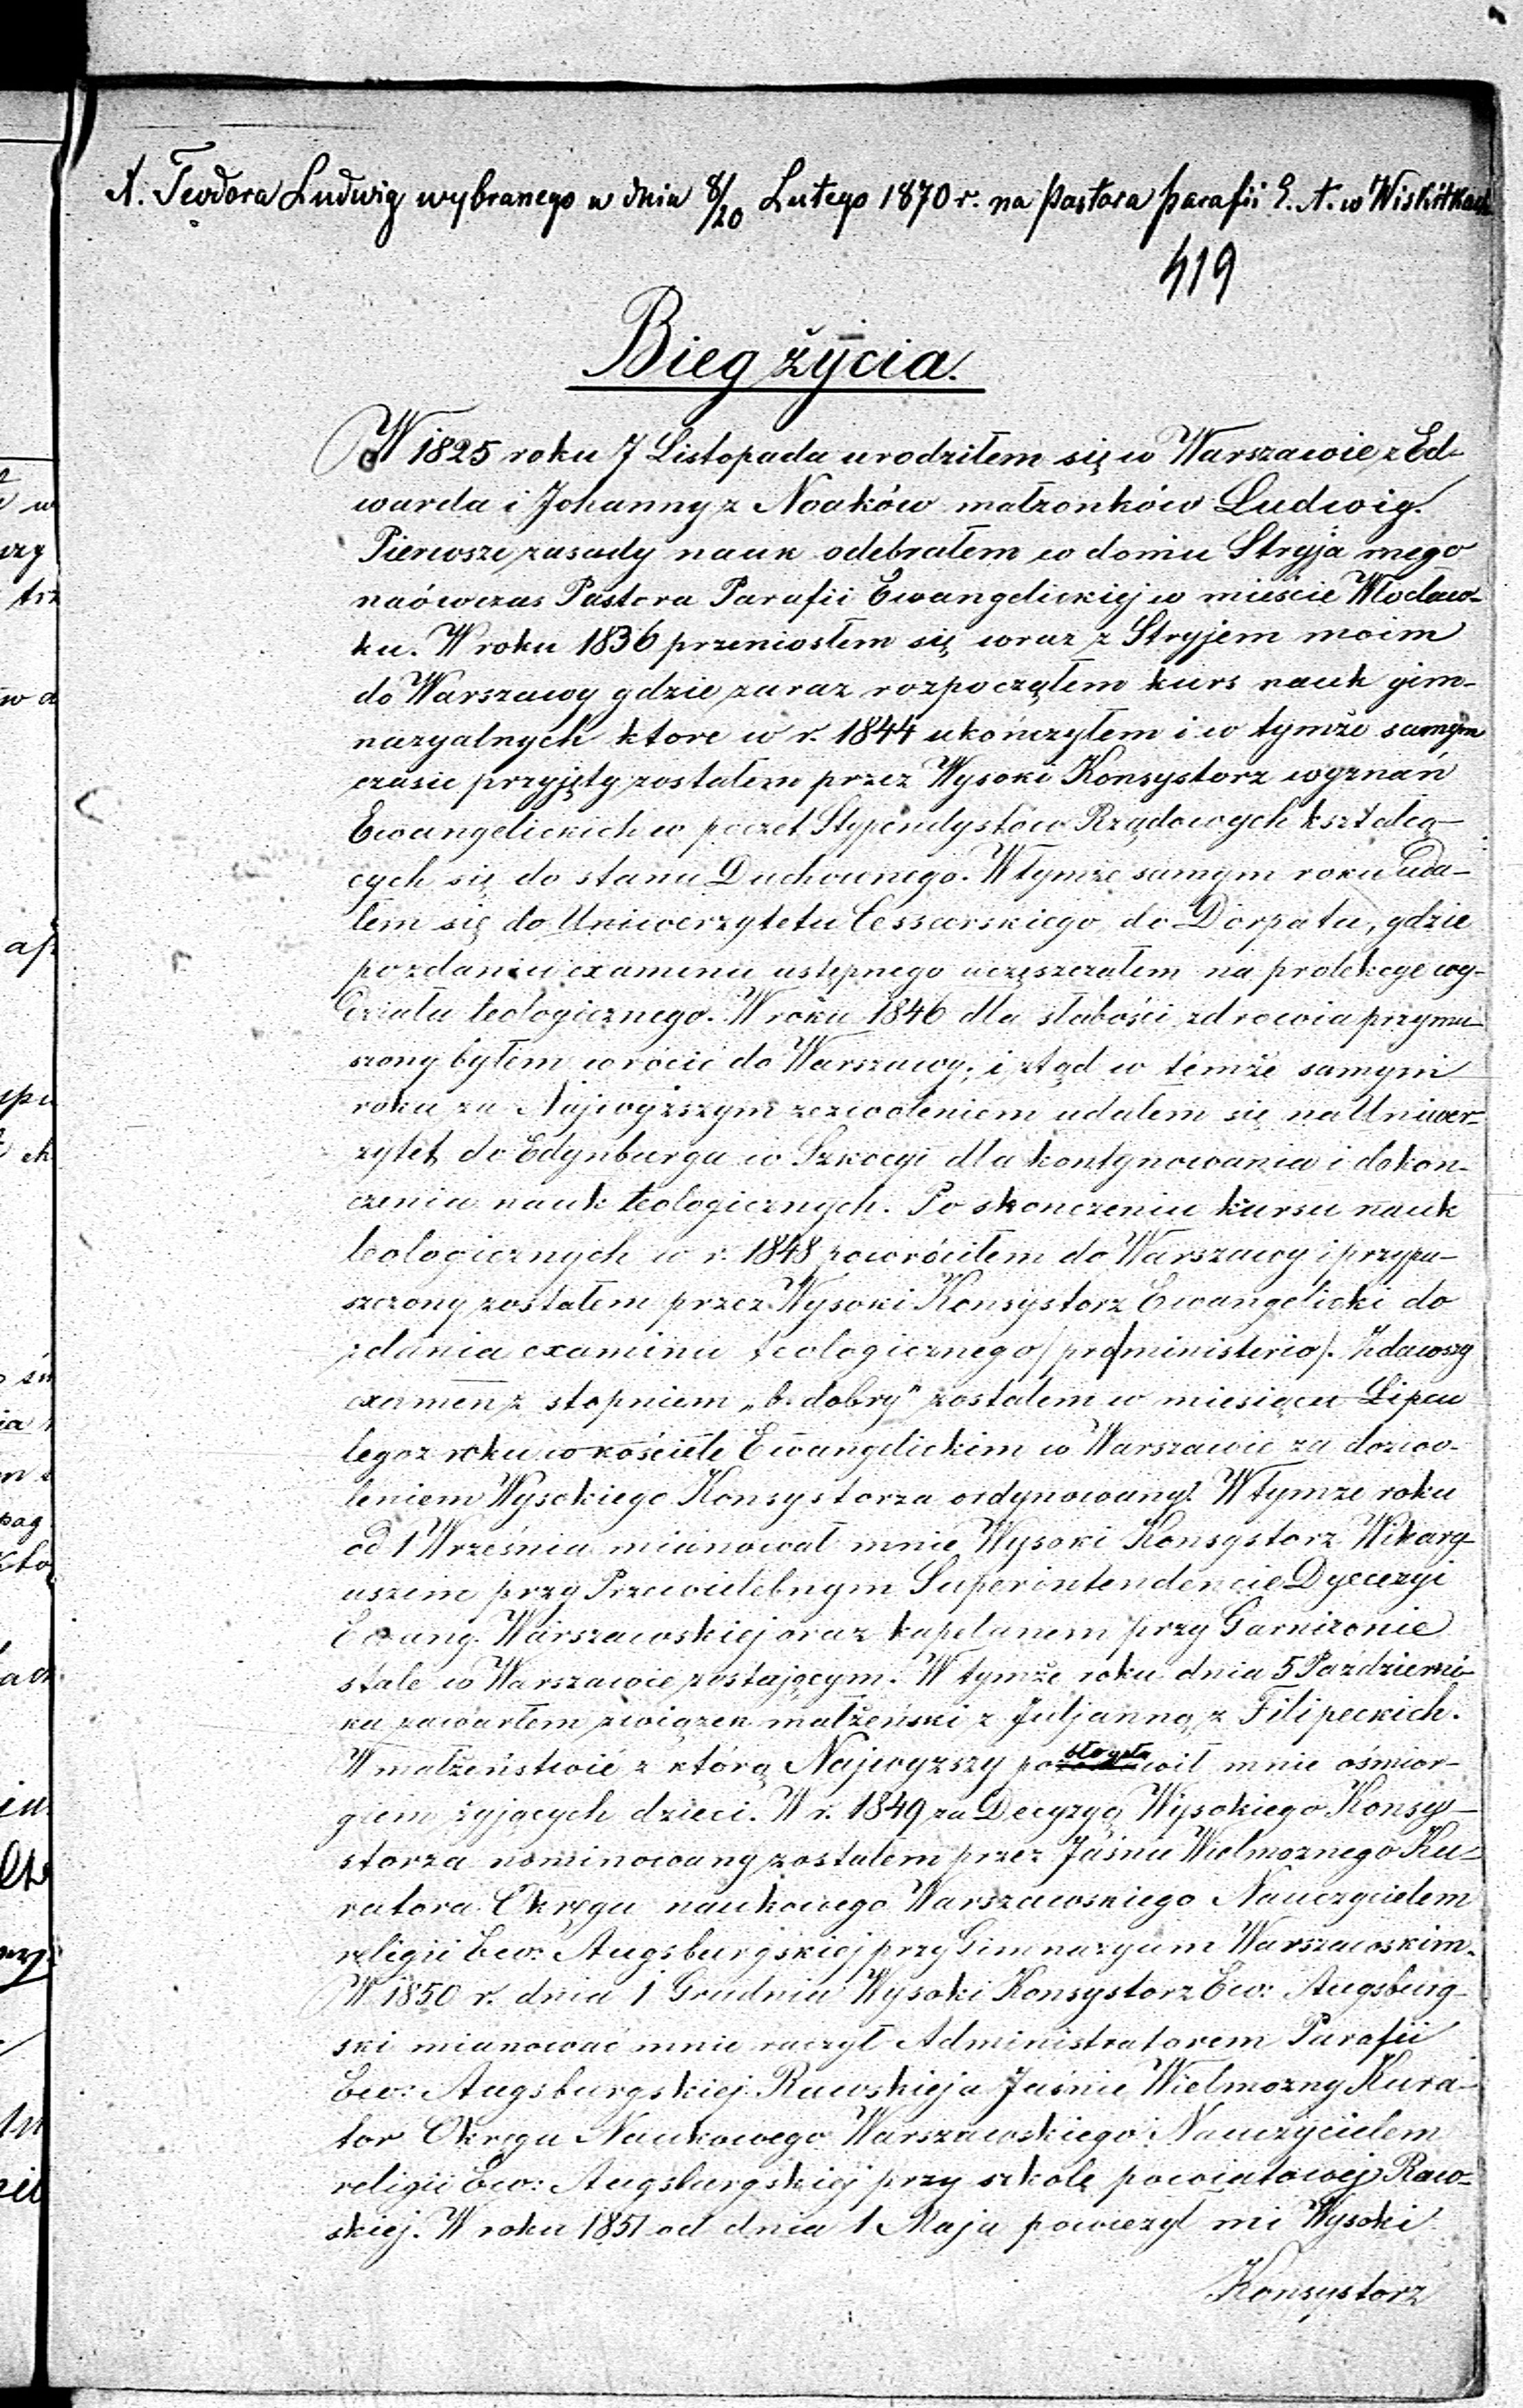 A. Teodora Ludwig wybranego w dniu 8/20 Lutego 1870 r. na Pastora parafii E. A. w Wiskitkach
419
Bieg życia.
W 1825 roku 7 Listopada urodziłem się w Warszawie z Ed-
warda i Johanny z Noaków małzonków Ludwig.
Pierwsze zasady nauk odebrałem w domu Stryja mego
naówczas Pastora Parafii Ewangelickiej w mieście Włocław-
ku. W roku 1836 przeniosłem się wraz z Stryjem moim
do Warszawy gdzie zaraz rozpocząłem kurs nauk gim-
nazyalnych ktore w r. 1844 ukończyłem i w tymże samym
czasie przyjęty zostałem przez Wysoki Konsystorz wyznań
Ewangelickich w poczet Stypendystów Rządowych kształcą-
cych się do stanu Duchownego. W tymże samym roku uda-
łem się do Uniwerzytetu Cessarskiego do Dorpatu, gdzie
po zdaniu examenu wstępnego uczęszczałem na prelekcye wy-
działu teologicznego. W roku 1846 dla słabości zdrowia przymu-
szony byłem wrócić do Warszawy, i ztąd w temże samym
roku za Najwyższym zezwoleniem udałem się na Uniwer-
zytet do Edynburga w Szkocyi dla kontynowania i dokon-
czenia nauk teologicznych. Po skonczeniu kursu nauk
teologicznych w r. 1848 powróciłem do Warszawy i przypu-
szczony zostałem przez Wysoki Konsystorz Ewangelicki do
zdania examinu teologicznego /pro ministerio/. Zdawszy
examen z stopniem „b. dobry" zostałem w miesiącu Lipcu
tegoz roku w kościele Ewangelickim w Warszawie za dozwo-
leniem Wysokiego Konsystorza ordynowany. W tymze roku
od 1 Września mianował mnie Wysoki Konsystorz Wikary-
uszem przy Przewielebnym Superintendencie Dyecezyi
Ewang. Warszawskiej oraz kapelanem przy Garnizonie
stale w Warszawie zostającym. W tymże roku dnia 5 Październi-
ka zawarłem związek małżeński z Juljanną z Filipeckich.
W małżeństwie z którą Najwyzszy pobłogosławił mnie ośmior-
giem żyjących dzieci. W r. 1849 za Decyzyą Wysokiego Konsy-
storza nominowany zostałem przez Jaśnie Wielmoznego Ku-
ratora Okręgu naukowego Warszawskiego Nauczycielem
religii Ew: Augsburgskiej przy Gimnazyum Warszawskim.
W 1850 r. dnia 1 Grudnia Wysoki Konsystorz Ew: Augsburg-
ski mianować mnie raczył Administratorem Parafii
Ew: Augsburgskiej Rawskiej a Jaśnie Wielmozny Kura-
tor Okręgu Naukowego Warszawskiego Nauczycielem
religii Ew: Augsburgskiej przy szkole powiatowej Raw-
skiej. W roku 1851 od dnia 1 Maja powierzył mi Wysoki
Konsystorz